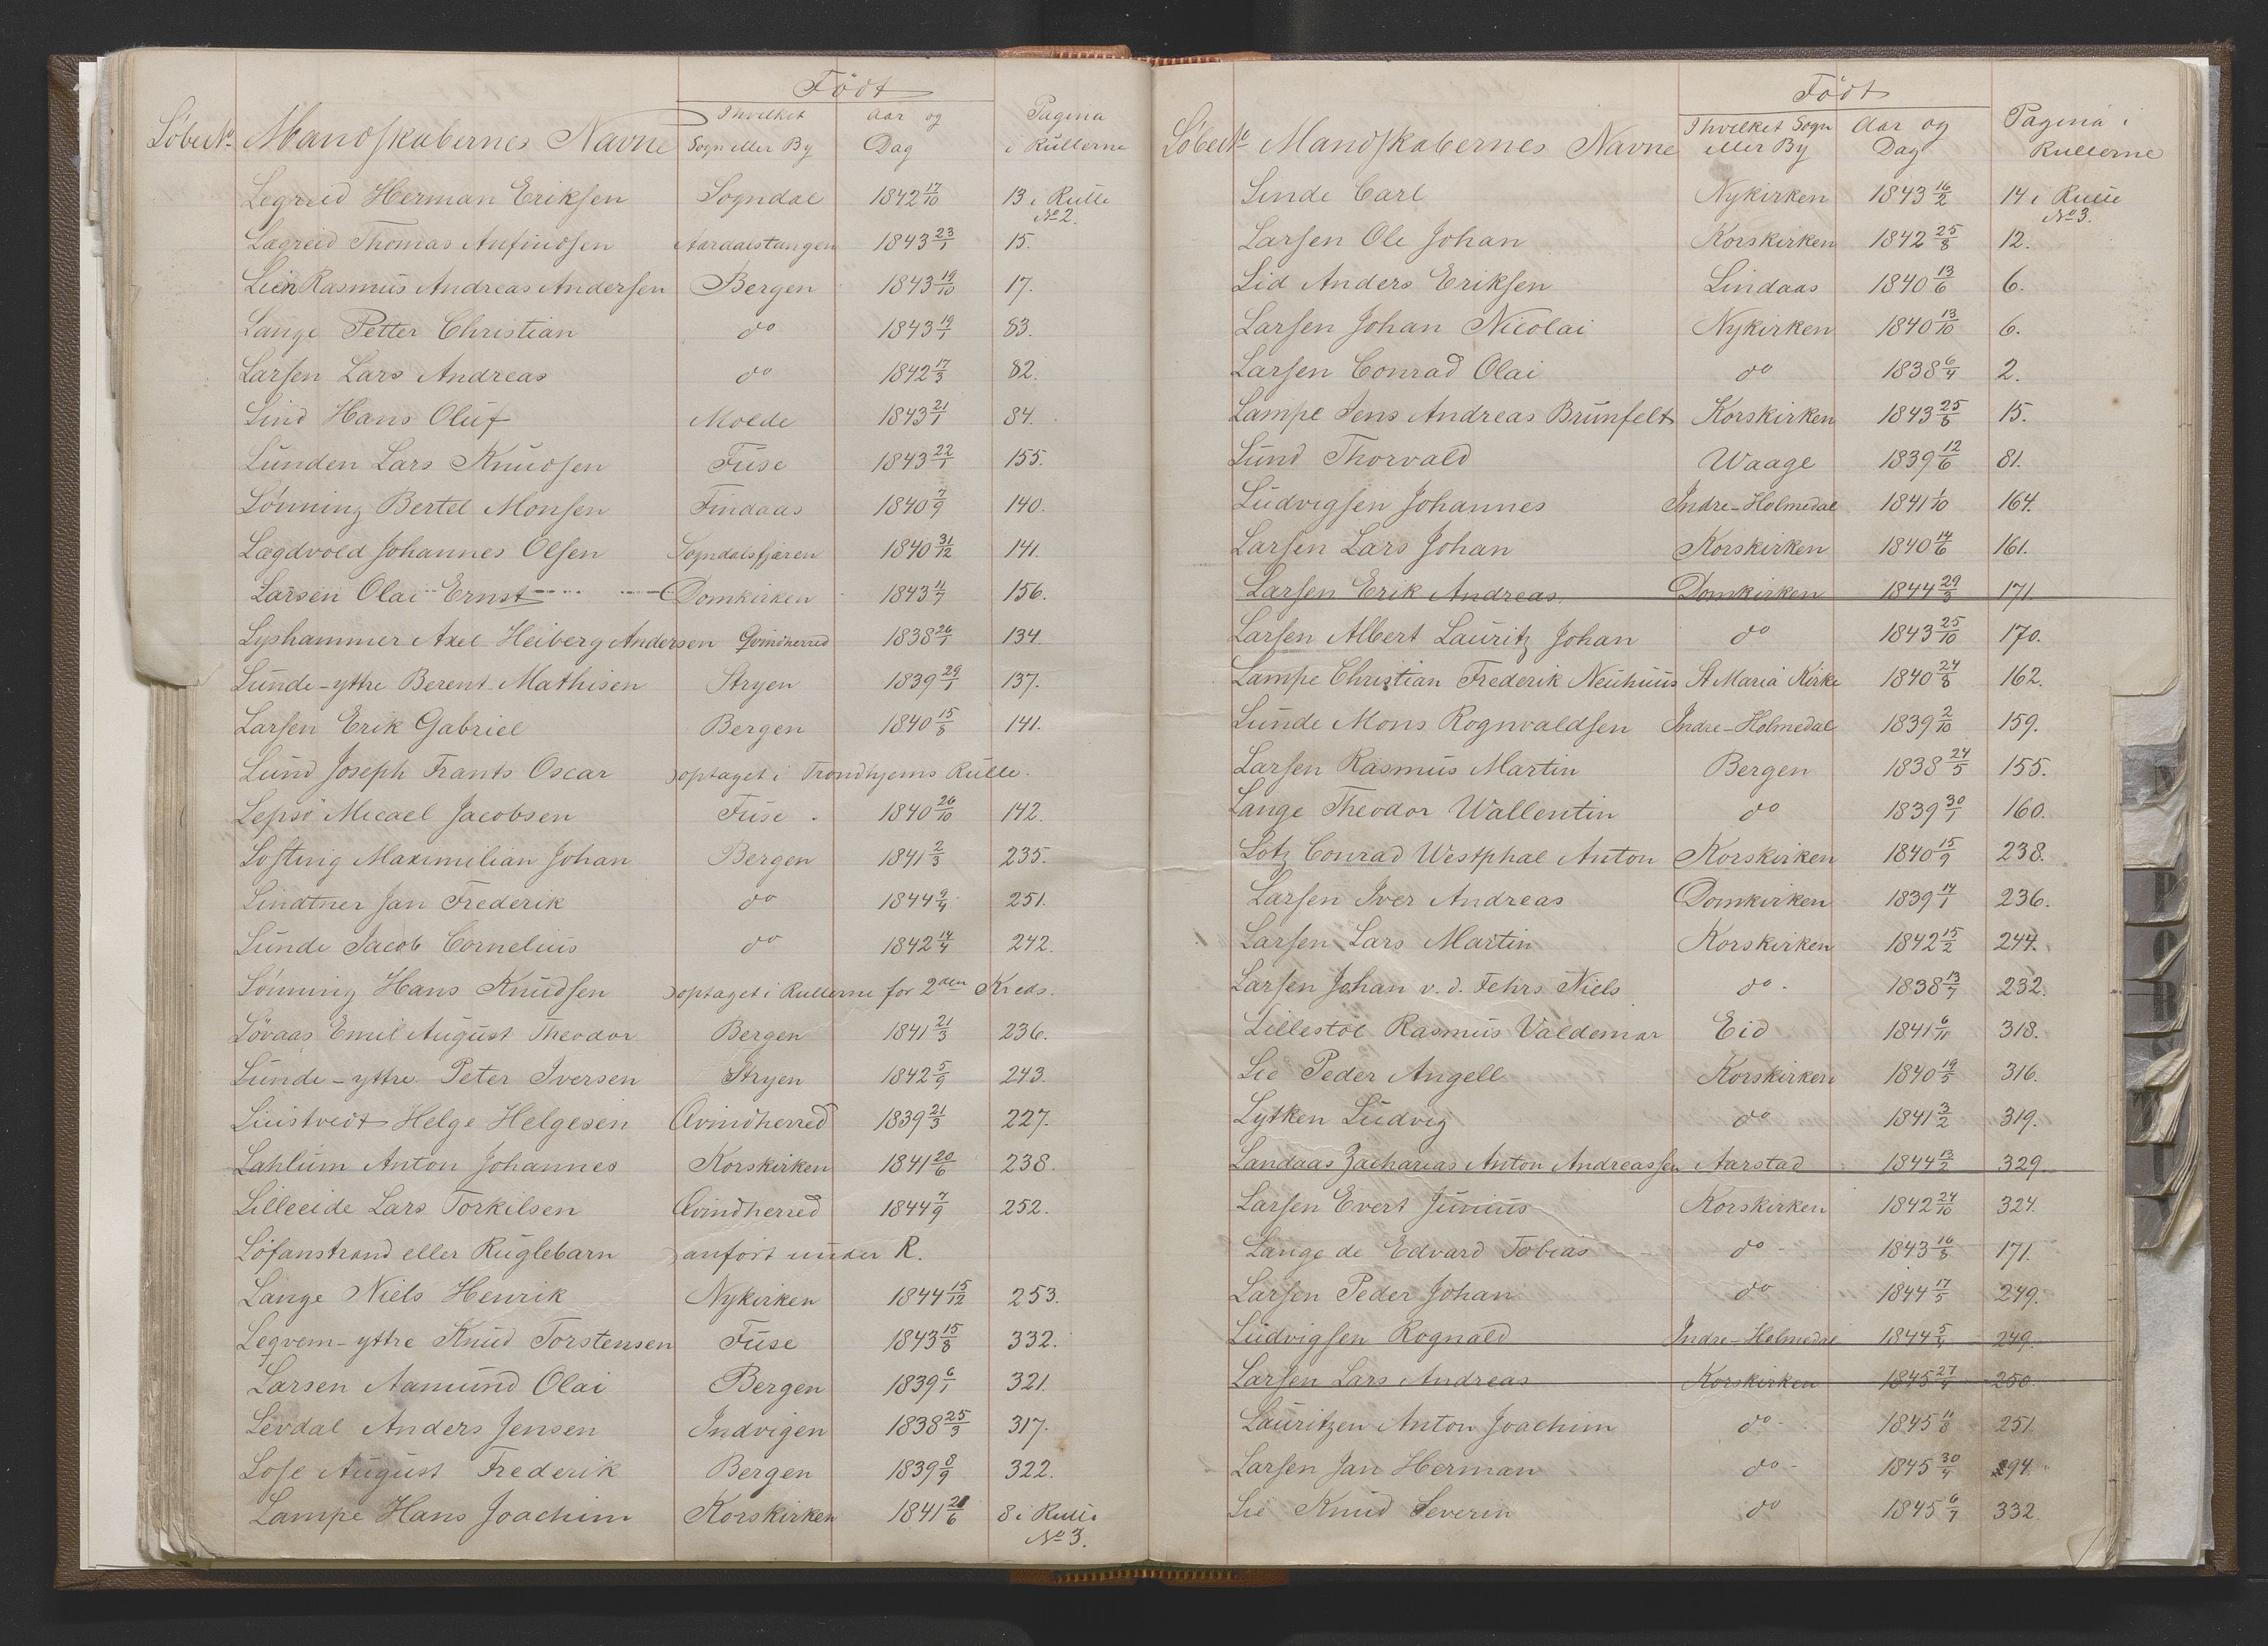 Født
Løbe No Mandskabernes Navne Ihvilket Sogn eller By Aar og Dag Pagina i Rullerne
Legreid Herman Eriksen Sogndal 1842 17/10 13 i Rulle No 2.
Lægreid Thomas Anfindsen Aardalstangen 1843 23/1 15.
Lien Rasmus Andreas Andersen Bergen 1843 19/10 17.
Lange Petter Christian do 1843 19/1 83.
Larsen Lars Andreas do 1842 17/3 82.
Lind Hans Oluf Molde 1843 21/1 84.
Lunden Lars Knudsen Fuse 1843 22/1 155.
Lønning Bertel Monsen Findaas 1840 7/9 140.
Lægdvold Johannes Olsen Sogndalsfjæren 1840 31/12 141.
Larsen Olai Ernst Domkirken 1843 11/7 156.
Lyshammer Axel Heiberg Andersen Qvindherred 1838 26/1 134.
Lunde-yttre Berent Mathisen Stryen 1839 29/1 137.
Larsen Erik Gabriel Bergen 1840 15/8 141.
Lund Joseph Frants Oscar optaget i Trondhjems Rulle.
Lepsö Micael Jacobsen Fuse 1840 26/10 142.
Loftwig Maximilian Johan Bergen 1841 2/3 235.
Lindtner Jan Frederik do 1844 9/4 251.
Lunde Jacob Cornelius do 1842 14/4 242.
Lønning Hans Knudsen optaget i Rullerne for 2den Kreds.
Løvaas Emil August Theodor Bergen 1841 21/3 236.
Lunde-yttre Peter Iversen Stryen 1842 5/9 243.
Liustvedt Helge Helgesen Qvindherred 1839 21/3 227.
Lahlum Anton Johannes Korskirken 1841 20/6 238.
Lilleeide Lars Torkilsen Qvindherred 1844 7/9 252.
Löfanstrand eller Ruglebarn anført under R.
Lange Niels Henrik Nykirken 1844 15/12 253.
Legvem-yttre Knud Torstensen Fuse 1843 15/8 332.
Larsen Aamund Olai Bergen 1839 6/1 321.
Levdal Anders Jensen Indvigen 1838 25/3 317.
Lose August Frederik Bergen 1839 8/9 322.
Lampe Hans Joachim Korskirken 1841 21/6 8 i Rulle No 3.
Født
Løbe No Mandskabernes Navne Ihvilket Sogn eller By Aar og Dag Pagina i Rullerne
Linde Carl Nykirken 1843 16/2 14 i Rulle No 3.
Larsen Ole Johan Korskirken 1842 25/8 12.
Lid Anders Eriksen Lindaas 1840 13/6 6.
Larsen Johan Nicolai Nykirken 1840 13/10 6.
Larsen Conrad Olai do 1838 6/4 2.
Lampe Jens Andreas Brunfelt Korskirken 1843 25/8 15.
Lund Thorvald Waage 1839 12/6 81.
Ludvigsen Johannes Indre-Holmedal 1841 1/10 164.
Larsen Lars Johan Korskirken 1840 14/6 161.
Larsen Erik Andreas Domkirken 1844 29/3 171.
Larsen Albert Lauritz Johan do 1843 25/10 170.
Lampe Christian Frederik Neuhuus St Maria Kirke 1840 24/8 162.
Lunde Mons Rognvaldsen Indre-Holmedal 1839 2/10 159.
Larsen Rasmus Martin Bergen 1838 24/5 155.
Lange Theodor Wallentin do 1839 30/1 160.
Lotz Conrad Westphal Anton Korskirken 1840 15/9 238.
Larsen Iver Andreas Domkirken 1839 14/1 236.
Larsen Lars Martin Korskirken 1842 15/2 244.
Larsen Johan v. d. Fehrs Niels do 1838 13/7 232.
Lillestöl Rasmus Valdemar Eid 1841 6/11 318.
Lie Peder Angell Korskirken 1840 19/5 316.
Lytken Ludvig do 1841 3/2 319.
Landaas Zacharias Anton Andreassen Aarstad 1844 13/2 329
Larsen Evert Junius Korskirken 1842 24/10 324.
Lange de Edvard Tobias do 1843 16/8 171.
Larsen Peder Johan do 1844 17/5 249.
Ludvigsen Rognald Indre-Holmedal 1844 5/4 249.
Larsen Lars Andreas Korskirken 1845 27/4 250.
Lauritzen Anton Joachim do 1845 11/8 251.
Larsen Jan Herman do 1845 30/4 294.
Lie Knud Severin do 1845 6/7 332.